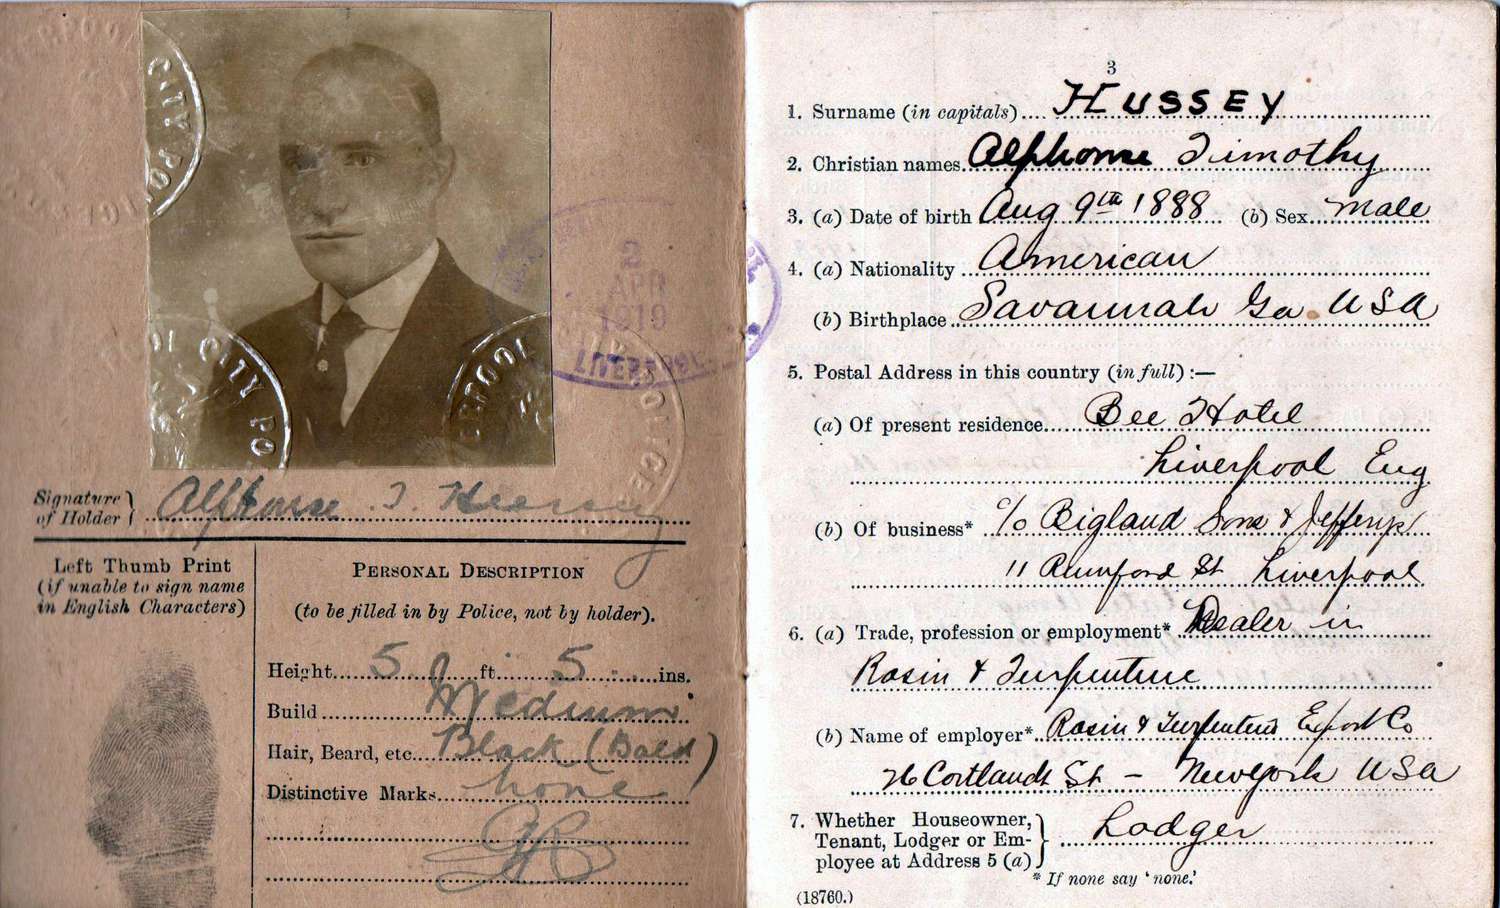 CITY PO
CITY PO
2
APR
1919
LIVERPOOL
Signature
of Holder
Alphonse T. Hussey
Left Thumb Print
(if unable to sign name
in English Characters)
PERSONAL DESCRIPTION
(to be filled in by Police, not by holder).
Height 5 ft 5 ins.
Build Medium
Hair, Beard, etc. Black (Bald)
Distinctive Marks none
3
1. Surname (in capitals) HUSSEY
2. Christian names Alphonse Timothy
3. (a) Date of birth Aug 9th 1888 (b) Sex male
4. (a) Nationality American
(b) Birthplace Savannah Ga. USA
5. Postal Address in this country (in full) :—
(a) Of present residence Bee Hotel
Liverpool Eng
(b) Of business* c/o Bigland Sons & Jefferys
11 Rumford St Liverpool
6. (a) Trade, profession or employment* Dealer in
Rosin & Turpentine
(b) Name of employer* Rosin & Turpentine Export Co
26 Cortlandt St – New York USA
7. Whether Houseowner,
Tenant, Lodger or Em-
ployee at Address 5 (a)
Lodger
* If none say 'none.'
(18760.)